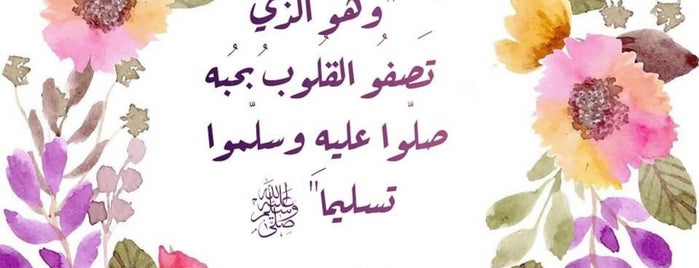 "وهو الذي
تَصفُو القُلوبُ بحُبه
صلّوا عليه وسلّموا
تسليماً" ﷺ